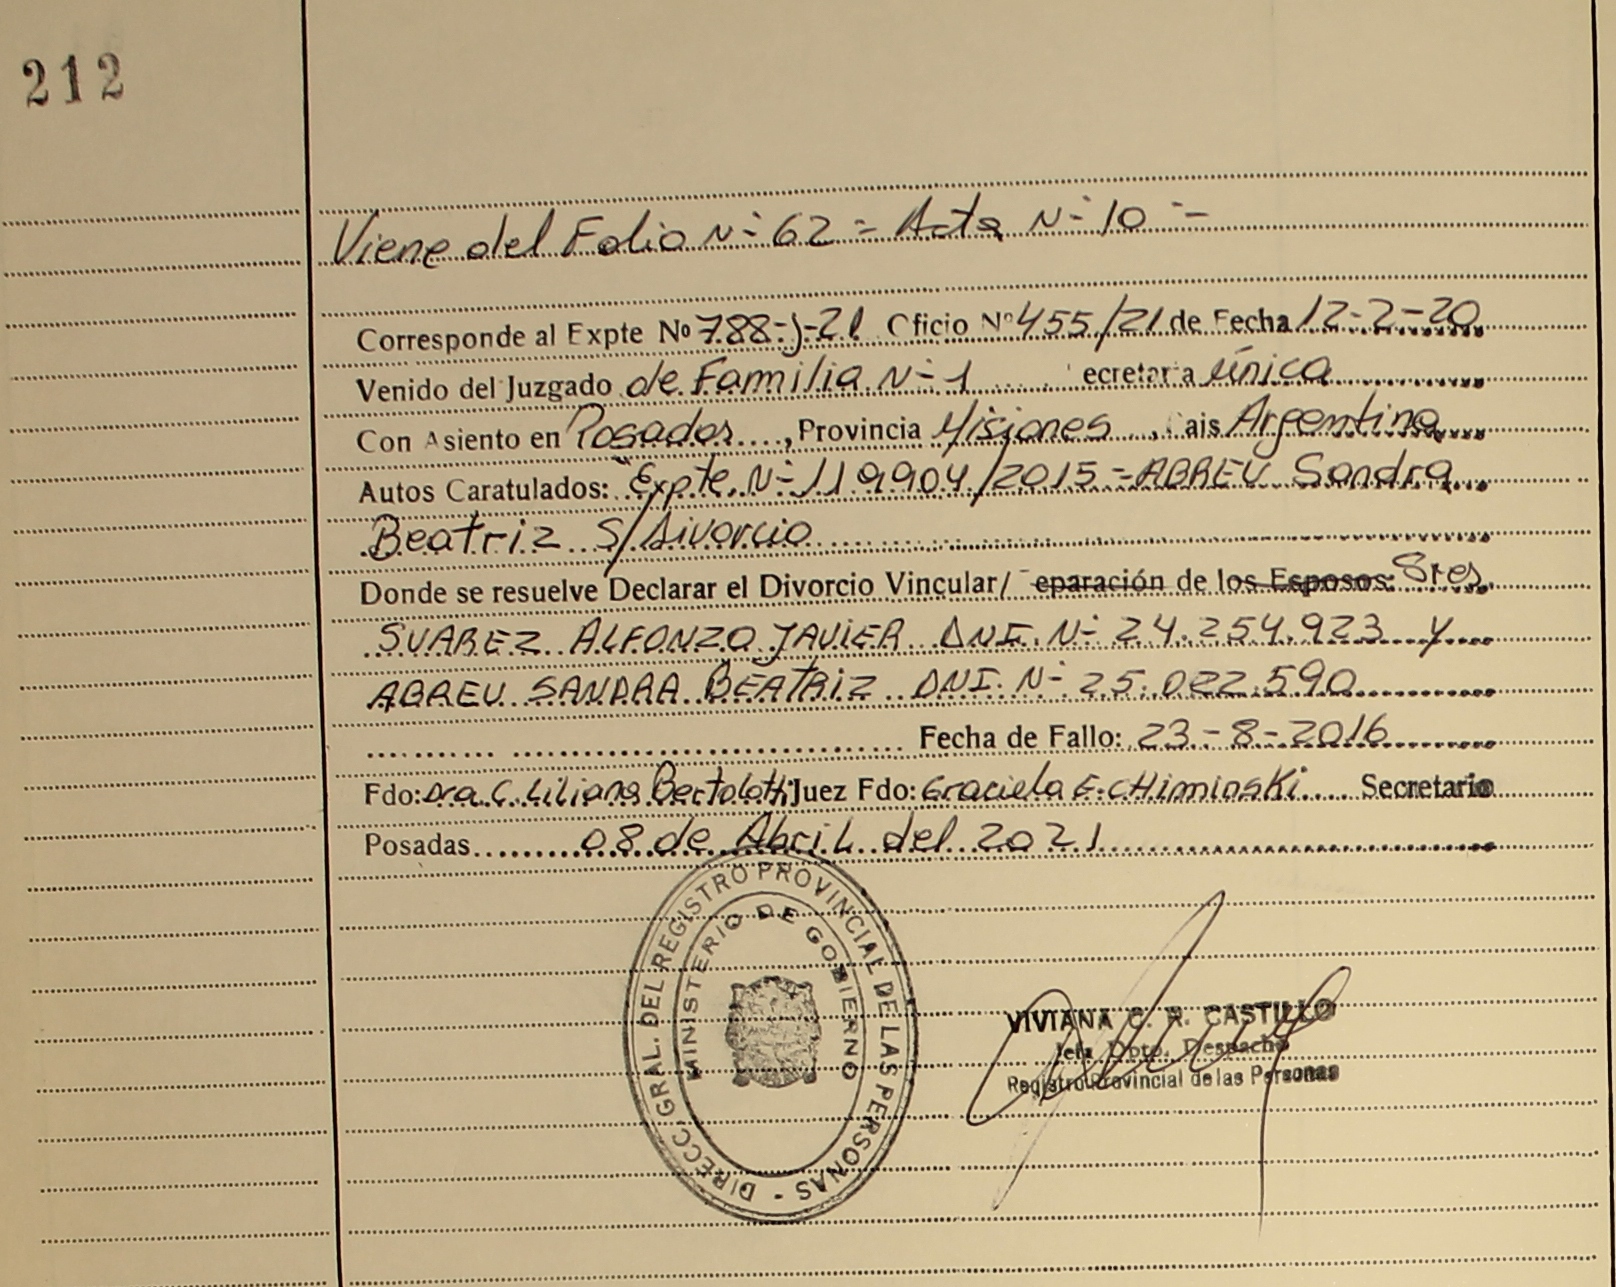 212
Viene del Folio Nº 62 = Acta Nº 10 =
Corresponde al Expte Nº 788-J-21 Oficio Nº 455/21 de Fecha 12-2-20
Venido del Juzgado de Familia Nº 1 ecretaria única
Con Asiento en Posadas, Provincia Misiones, ais Argentina
Autos Caratulados: "Expte. Nº 119904/2015 = ABREU Sandra
Beatriz S/Divorcio
Donde se resuelve Declarar el Divorcio Vincular/ eparación de los Esposos: Sres.
SUAREZ ALFONZO JAVIER DNI. Nº 24.254.923 y
ABREU SANDRA BEATRIZ DNI. Nº 25.022.590
Fecha de Fallo: 23-8-2016
Fdo: Dra. C. Liliana Juez Fdo: Graciela E. Secretario
Posadas 08 de Abril del 2021
DIRECC. GRAL. DEL REGISTRO PROVINCIAL DE LAS PERSONAS -
MINISTERIO DE GOBIERNO
VIVIANA C. R. CASTILLO
Jefa Dpto. Despacho
Registro Provincial de las Personas